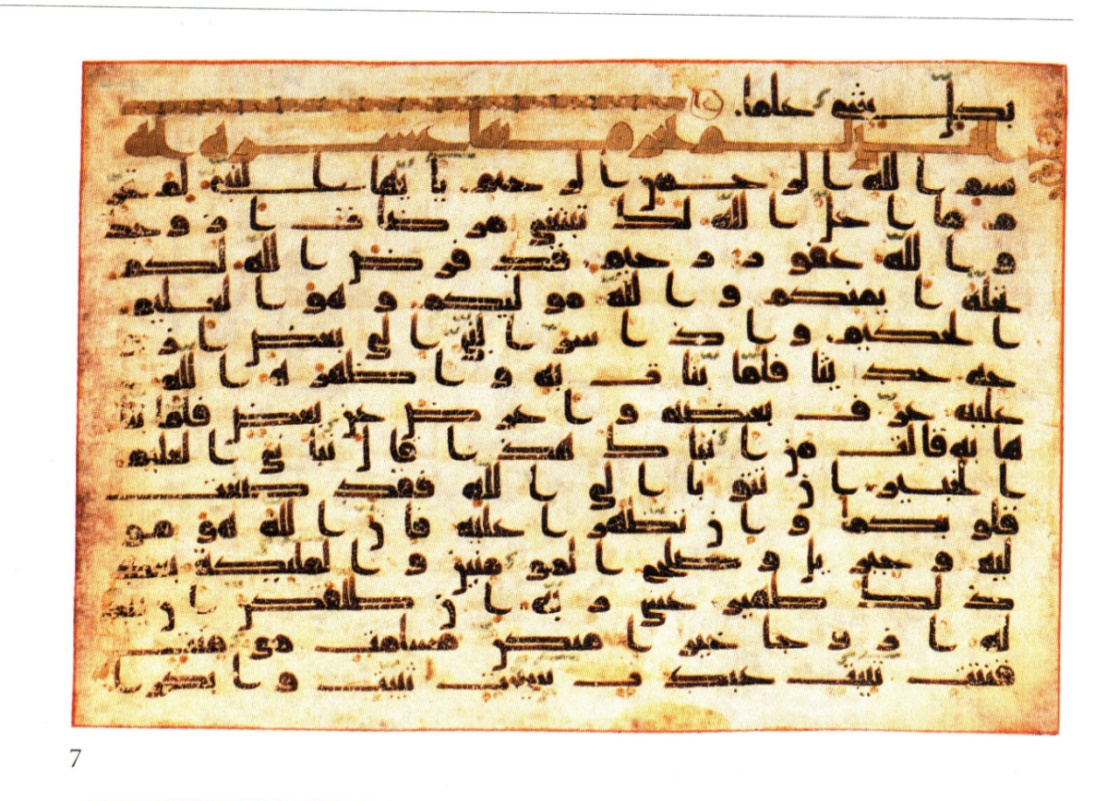 بكل شي علما
عشره ايه
بسم الله الرحمن الرحيم يايها النبي لم تحر
م ما احل الله لك تبتغي مرضات ازوجك
والله غفور رحيم قد فرض الله لكم
تحلة ايمنكم والله موليكم وهو العليم
الحكيم واذ اسر النبي الى بعض ازو
جه حديثا فلما نبات به واظهره الله
عليه عرف بعضه واعرض عن بعض فلما نبا
ها به قالت من انباك هذا قال نباني العليم
الخبير ان تتوبا الى الله فقد صغت
قلوبكما وان تظهرا عليه فان الله هو مو
ليه وجبريل وصلح المومنين والمليكة بعد
ذلك ظهير عسى ربه ان طلقكن ان يبد
له ازوجا خيرا منكن مسلمت مومنت
قنتت تيبت عبدت سيحت ثيبت وابكارا
7